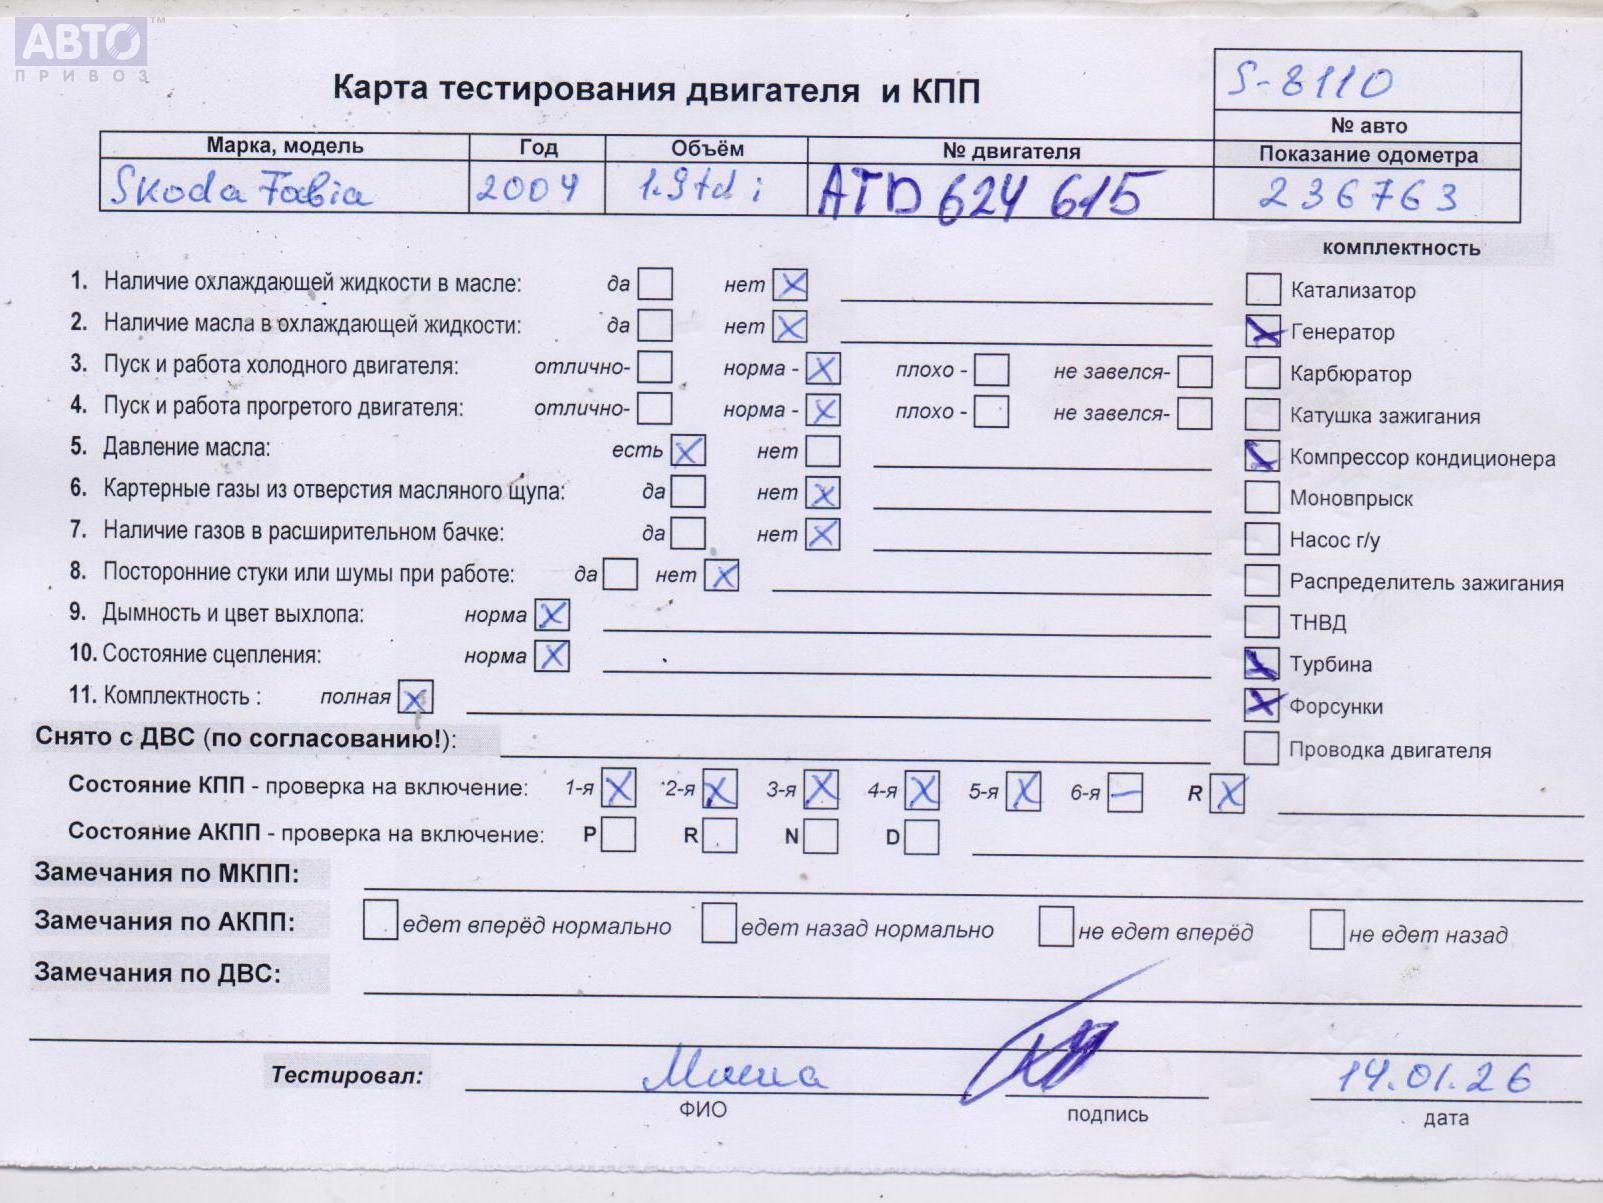 АВТО™
ПРИВОЗ
Карта тестирования двигателя и КПП
S-8110
№ авто
Марка, модель Год Объём № двигателя Показание одометра
Skoda Fabia 2004 1.9tdi ATD 624 615 236763
комплектность
1. Наличие охлаждающей жидкости в масле: да нет X
Катализатор
2. Наличие масла в охлаждающей жидкости: да нет X
Генератор X
3. Пуск и работа холодного двигателя: отлично- норма - X плохо - не завелся-
Карбюратор
4. Пуск и работа прогретого двигателя: отлично- норма - X плохо - не завелся-
Катушка зажигания
5. Давление масла: есть X нет
Компрессор кондиционера X
6. Картерные газы из отверстия масляного щупа: да нет X
Моновпрыск
7. Наличие газов в расширительном бачке: да нет X
Насос г/у
8. Посторонние стуки или шумы при работе: да нет X
Распределитель зажигания
9. Дымность и цвет выхлопа: норма X
ТНВД
10. Состояние сцепления: норма X
Турбина X
11. Комплектность : полная X
Форсунки X
Снято с ДВС (по согласованию!):
Проводка двигателя
Состояние КПП - проверка на включение: 1-я X 2-я X 3-я X 4-я X 5-я X 6-я – R X
Состояние АКПП - проверка на включение: P R N D
Замечания по МКПП:
Замечания по АКПП: едет вперёд нормально едет назад нормально не едет вперёд не едет назад
Замечания по ДВС:
Тестировал: 14.01.26
ФИО подпись дата